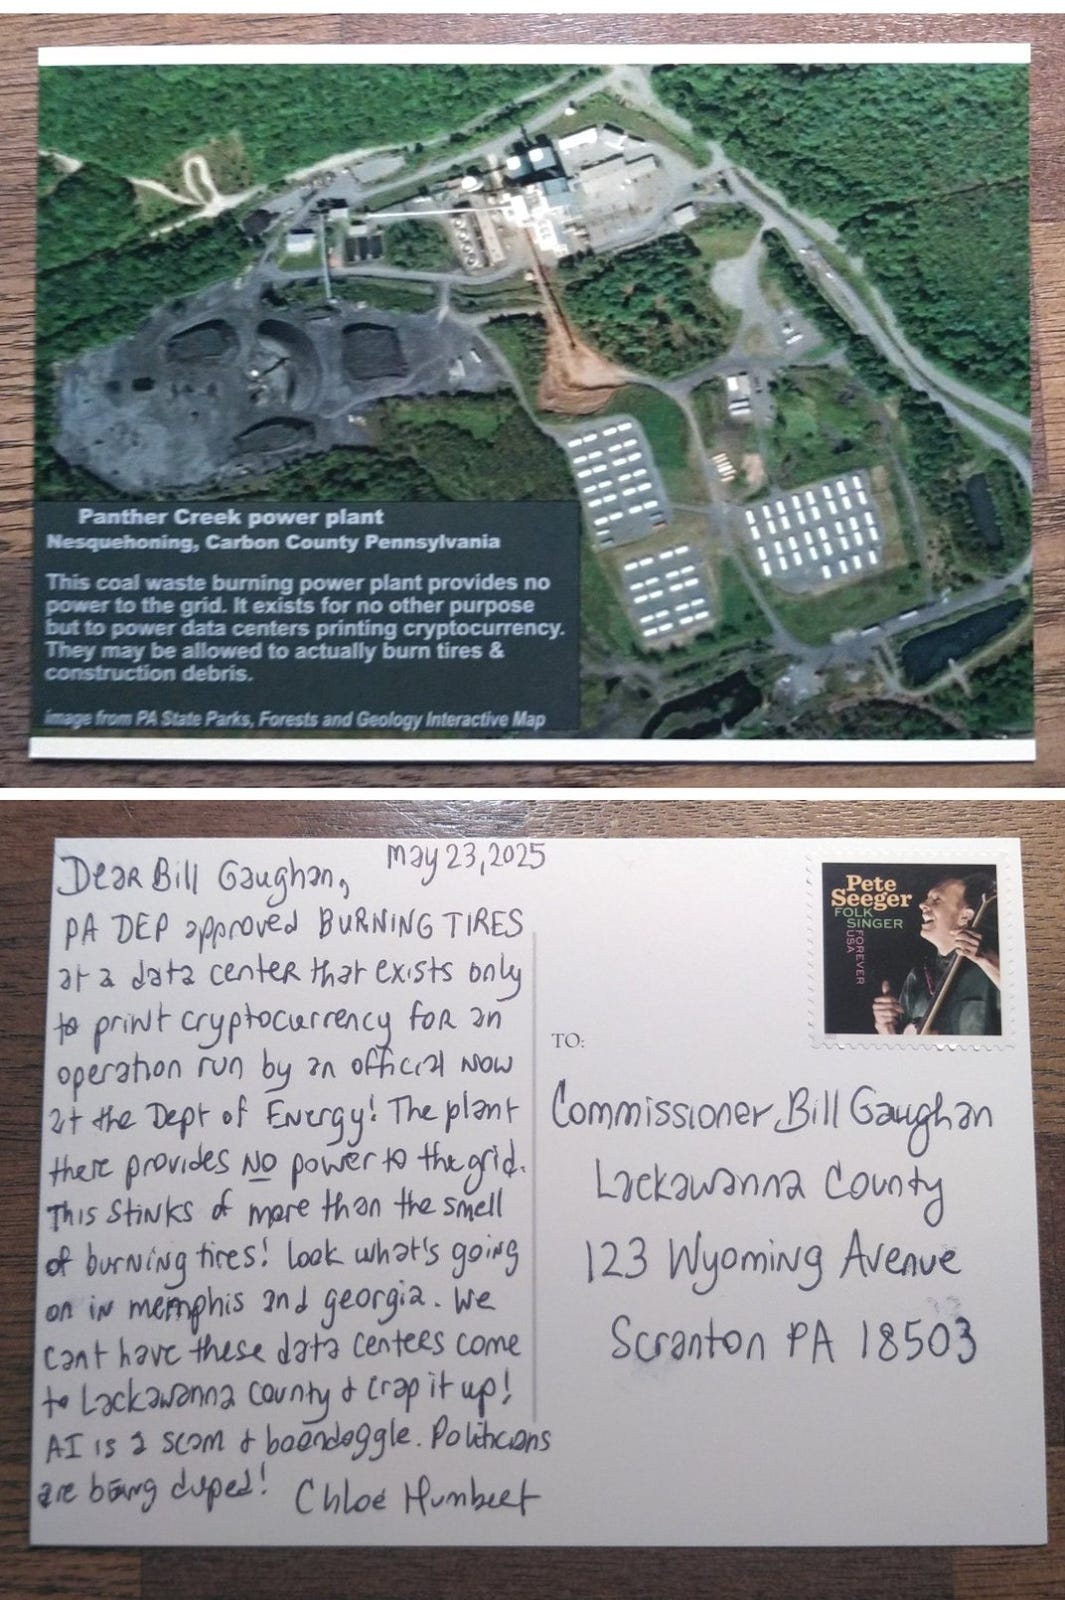 Panther Creek power plant
Nesquehoning, Carbon County Pennsylvania
This coal waste burning power plant provides no
power to the grid. It exists for no other purpose
but to power data centers printing cryptocurrency.
They may be allowed to actually burn tires &
construction debris.
image from PA State Parks, Forests and Geology Interactive Map
May 23, 2025
Dear Bill Gaughan,
PA DEP approved BURNING TIRES
at a data center that exists only
to print cryptocurrency for an
operation run by an official now
at the Dept of Energy! The plant
there provides NO power to the grid.
This stinks of more than the smell
of burning tires! Look what's going
on in memphis and georgia. We
cant have these data centers come
to Lackawanna County & crap it up!
AI is a scam & boondoggle. Politicians
are being duped!
Chloe Humbert
Pete
Seeger
FOLK
SINGER
FOREVER
USA
TO:
Commissioner Bill Gaughan
Lackawanna County
123 Wyoming Avenue
Scranton PA 18503